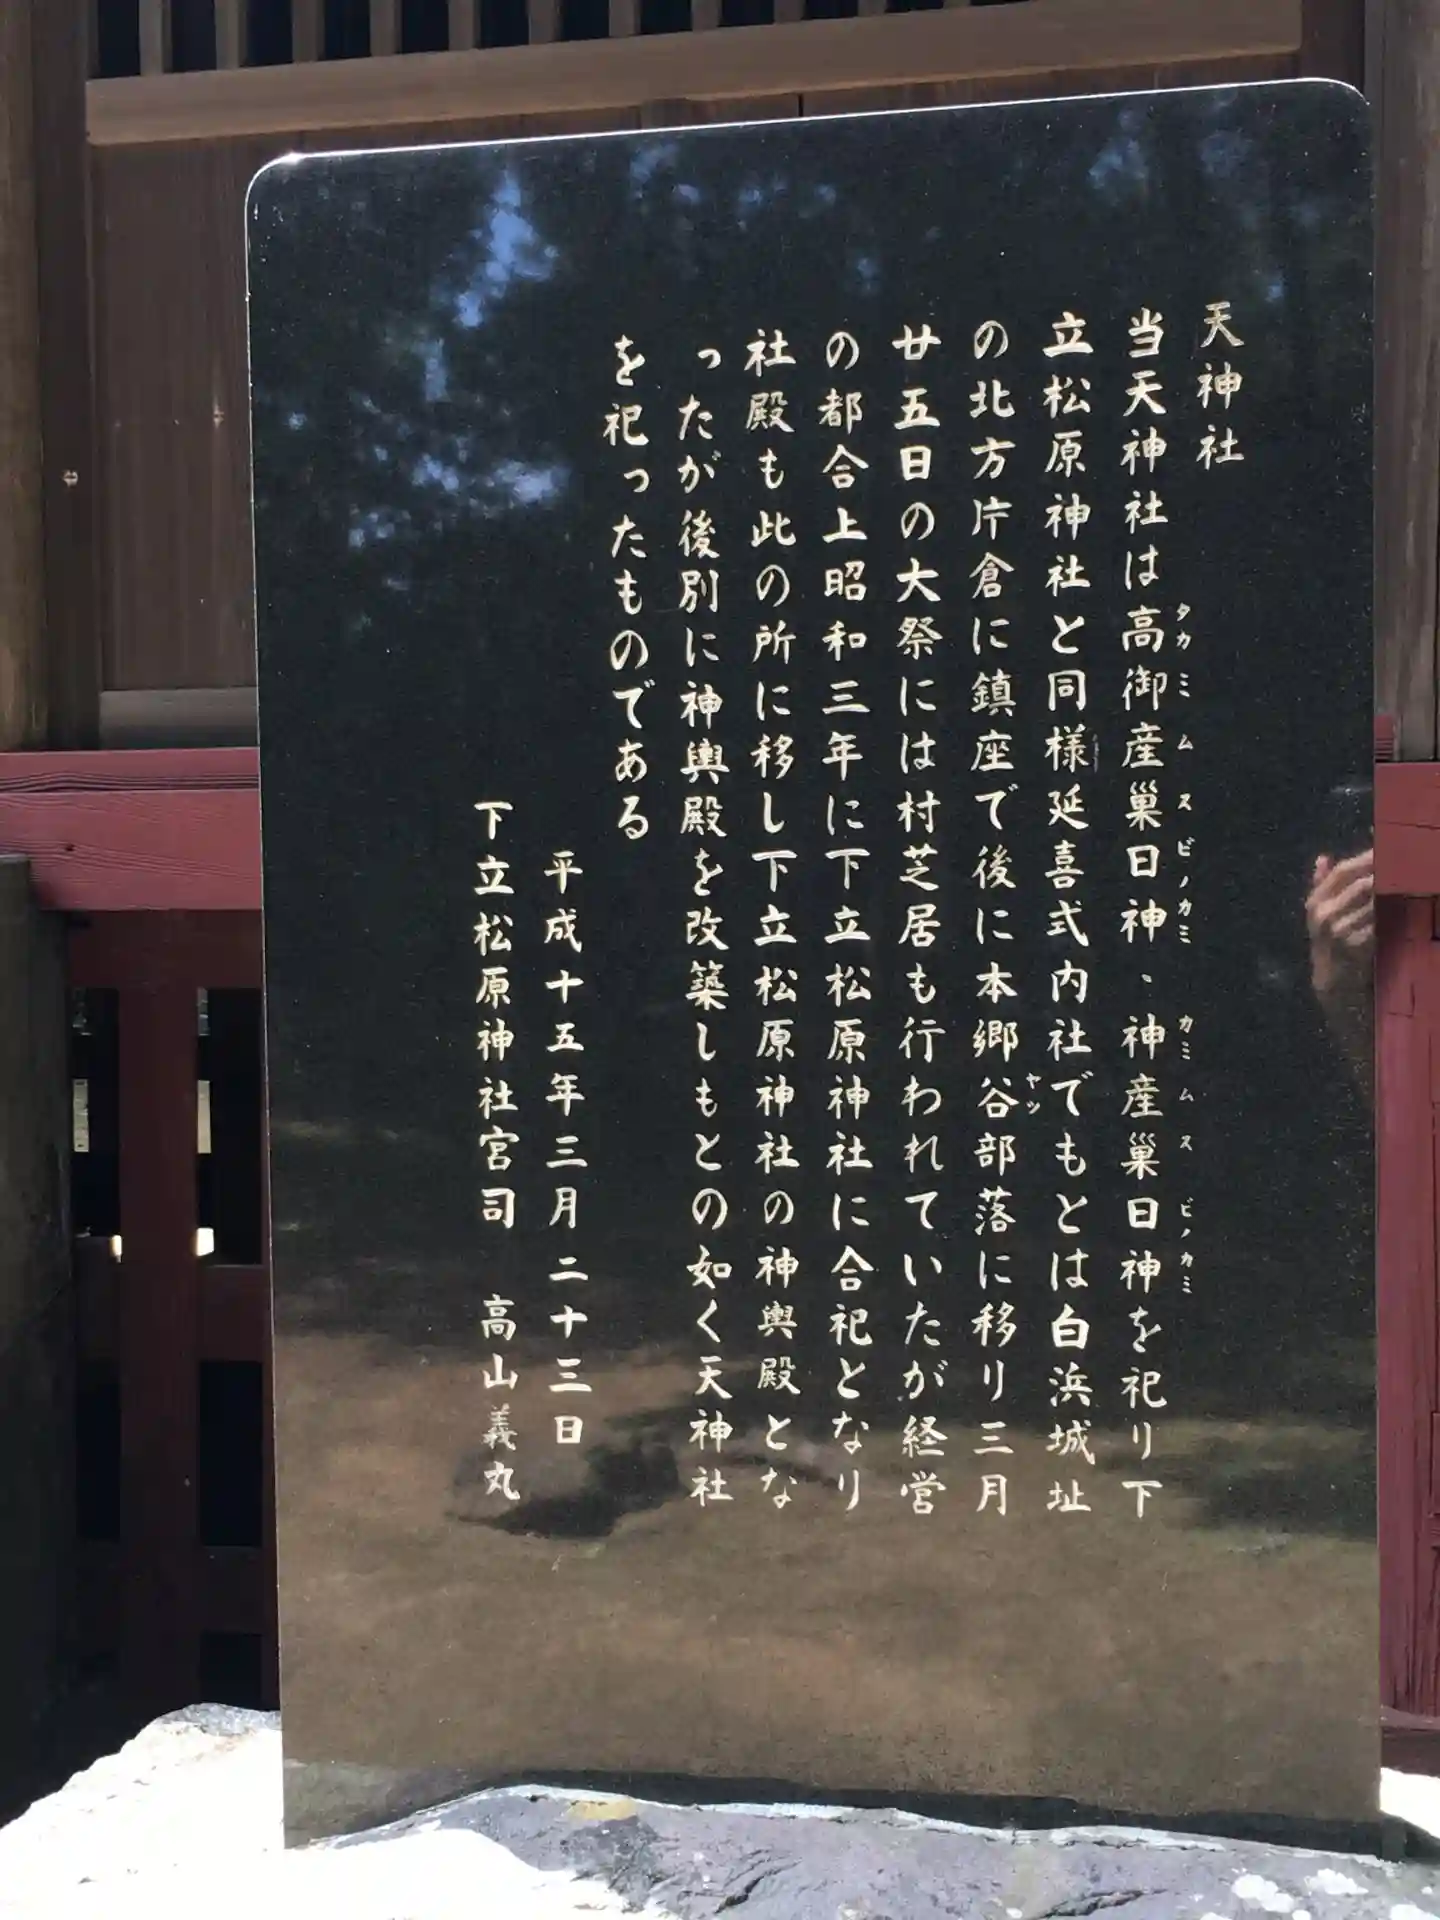 天神社
当天神社は高御産巣日神、神産巣日神を祀り下
タカミムスビノカミ
カミムスビノカミ
立松原神社と同様延喜式内社でもとは白浜城址
の北方片倉に鎮座で後に本郷谷部落に移り三月
ヤツ
廿五日の大祭には村芝居も行われていたが経営
の都合上昭和三年に下立松原神社に合祀となり
社殿も此の所に移し下立松原神社の神輿殿とな
ったが後別に神輿殿を改築しもとの如く天神社
を祀ったものである
平成十五年三月二十三日
下立松原神社宮司 高山義丸